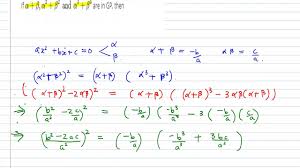 If α+β, α²+β² and α³+β³ are in GP, then
ax² + bx + c = 0 < α β α + β = -b/a αβ = c/a
(α² + β²)² = (α+β) (α³ + β³)
((α+β)² - 2αβ)² = (α+β) ((α+β)³ - 3αβ(α+β))
⇒ (b²/a² - 2c/a)² = (-b/a) (-b³/a³ - 3 (-b/a)(c/a))
⇒ (b² - 2ac/a²)² = (-b/a) (-b³/a³ + 3bc/a²)